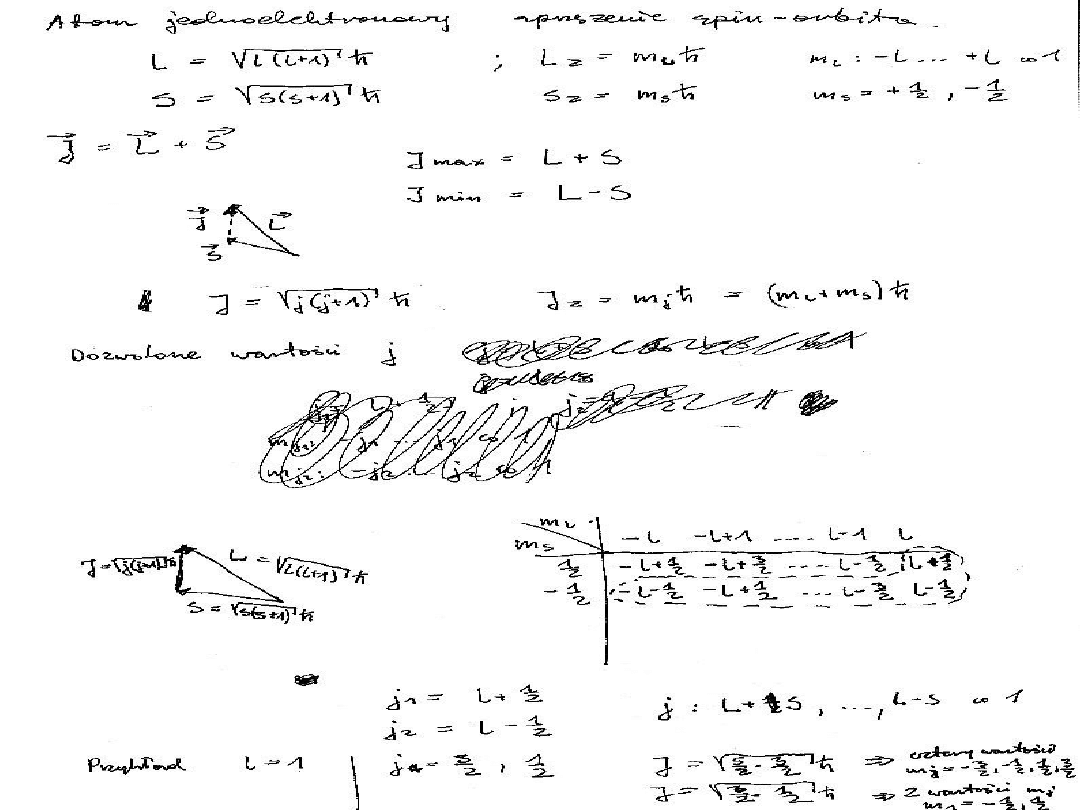 Atom jednoelektronowy sprzężenie spin-orbita
L = √l(l+1) ħ ; Lz = mₗħ mₗ: -l ... +l co 1
S = √s(s+1) ħ Sz = mₛħ mₛ = +1/2, -1/2
J⃗ = L⃗ + S⃗
J max = L + S
J min = L - S
J⃗ L⃗
S⃗
J = √j(j+1) ħ Jz = mⱼħ = (mₗ+mₛ)ħ
Dozwolone wartości j
mₗ
mₛ -l -l+1 .... l-1 l
1/2 -l+1/2 -l+3/2 ... l-1/2 l+1/2
-1/2 -l-1/2 -l+1/2 ... l-3/2 l-1/2
J=√j(j+1)ħ L = √l(l+1) ħ
S = √s(s+1) ħ
j₁ = l + 1/2
j₂ = l - 1/2 j : l+s, ..., l-s co 1
Przykład l = 1 j = 3/2, 1/2 J = √ ħ ⇒ cztery wartości
mⱼ = -3/2, -1/2, 1/2, 3/2
J = √ ħ ⇒ 2 wartości mⱼ
= -1/2, 1/2